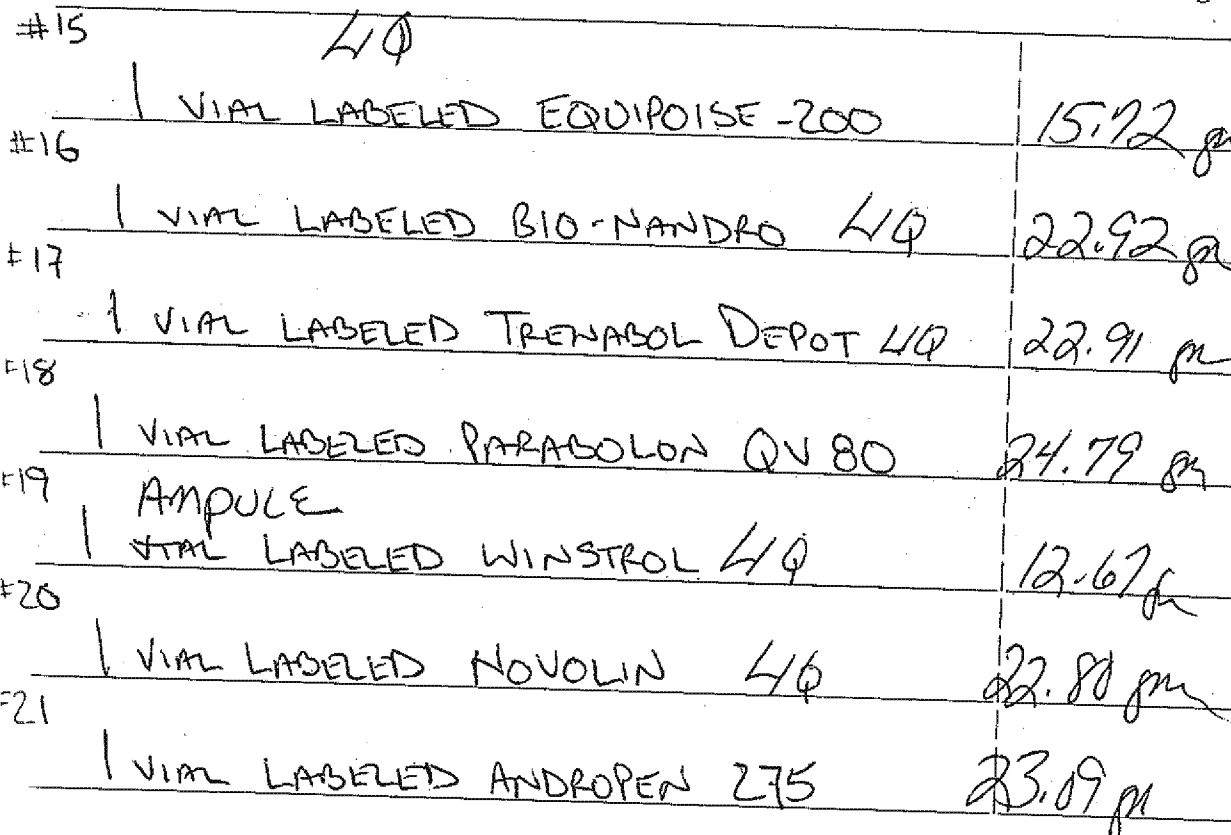 #15 LIQ
1 VIAL LABELED EQUIPOISE -200 15.72 gm
#16
1 VIAL LABELED BIO-NANDRO LIQ 22.92 gm
#17
1 VIAL LABELED TRENABOL DEPOT LIQ 22.91 gm
#18
1 VIAL LABELED PARABOLON QV 80 24.79 gm
#19 AMPULE
1 VIAL LABELED WINSTROL LIQ 12.67 gm
#20
1 VIAL LABELED NOVOLIN LIQ 22.80 gm
#21
1 VIAL LABELED ANDROPEN 275 23.09 gm